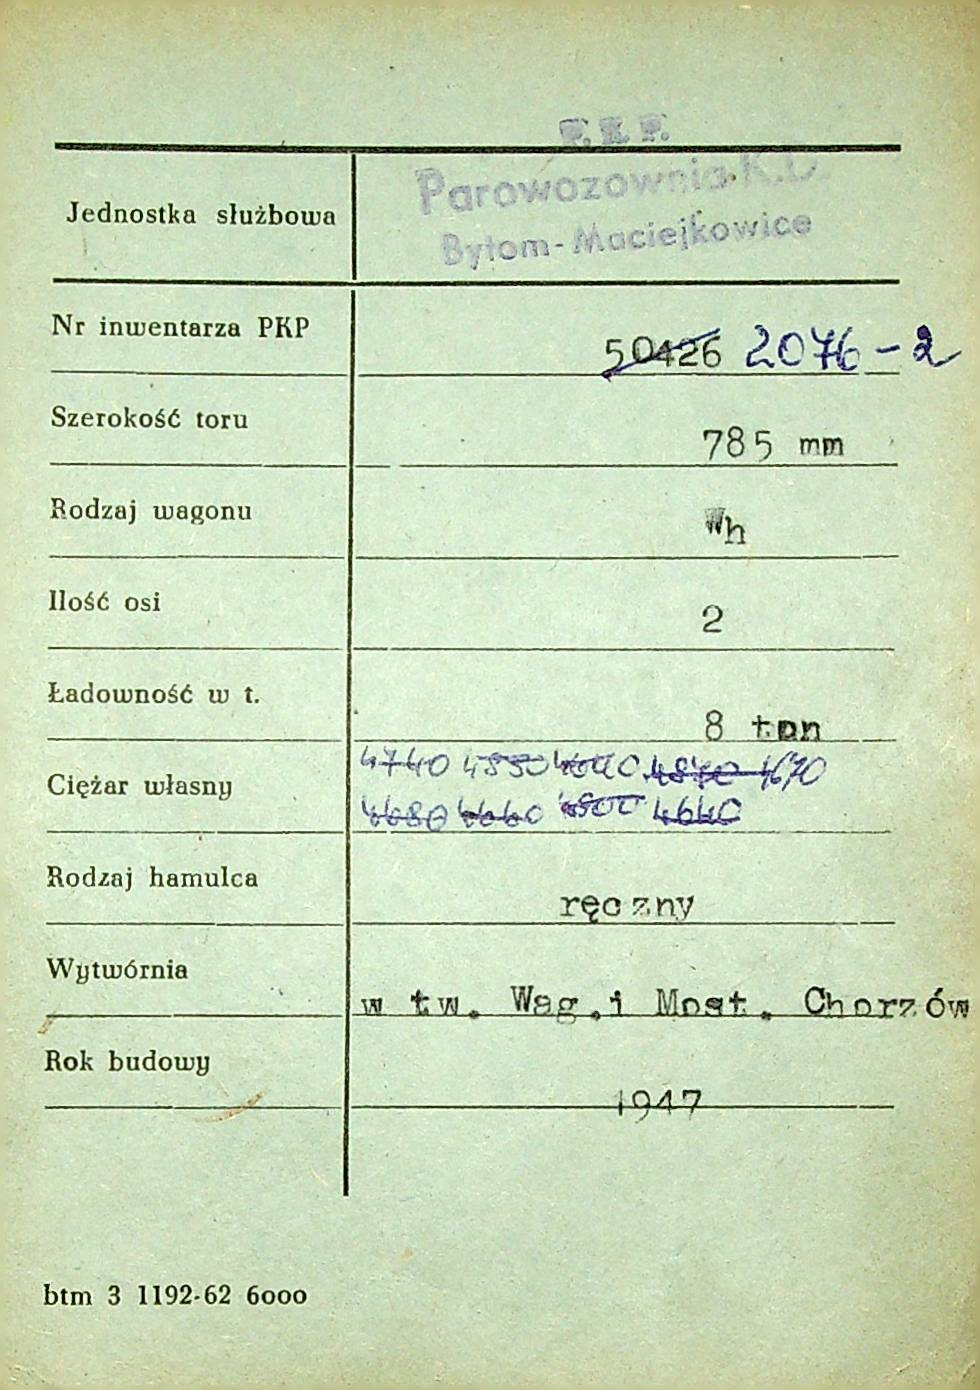 P. K. P.
Parowozownia K.D.
Jednostka służbowa
Bytom-Maciejkowice
Nr inwentarza PKP 50426 2076-2
Szerokość toru 785 mm
Rodzaj wagonu Wh
Ilość osi 2
Ładowność w t. 8 ton
4740 4670
Ciężar własny
4680 4660 4800 4640
Rodzaj hamulca ręczny
Wytwórnia w tw. Wag.i Most. Chorzów
Rok budowy 1947
btm 3 1192-62 6000